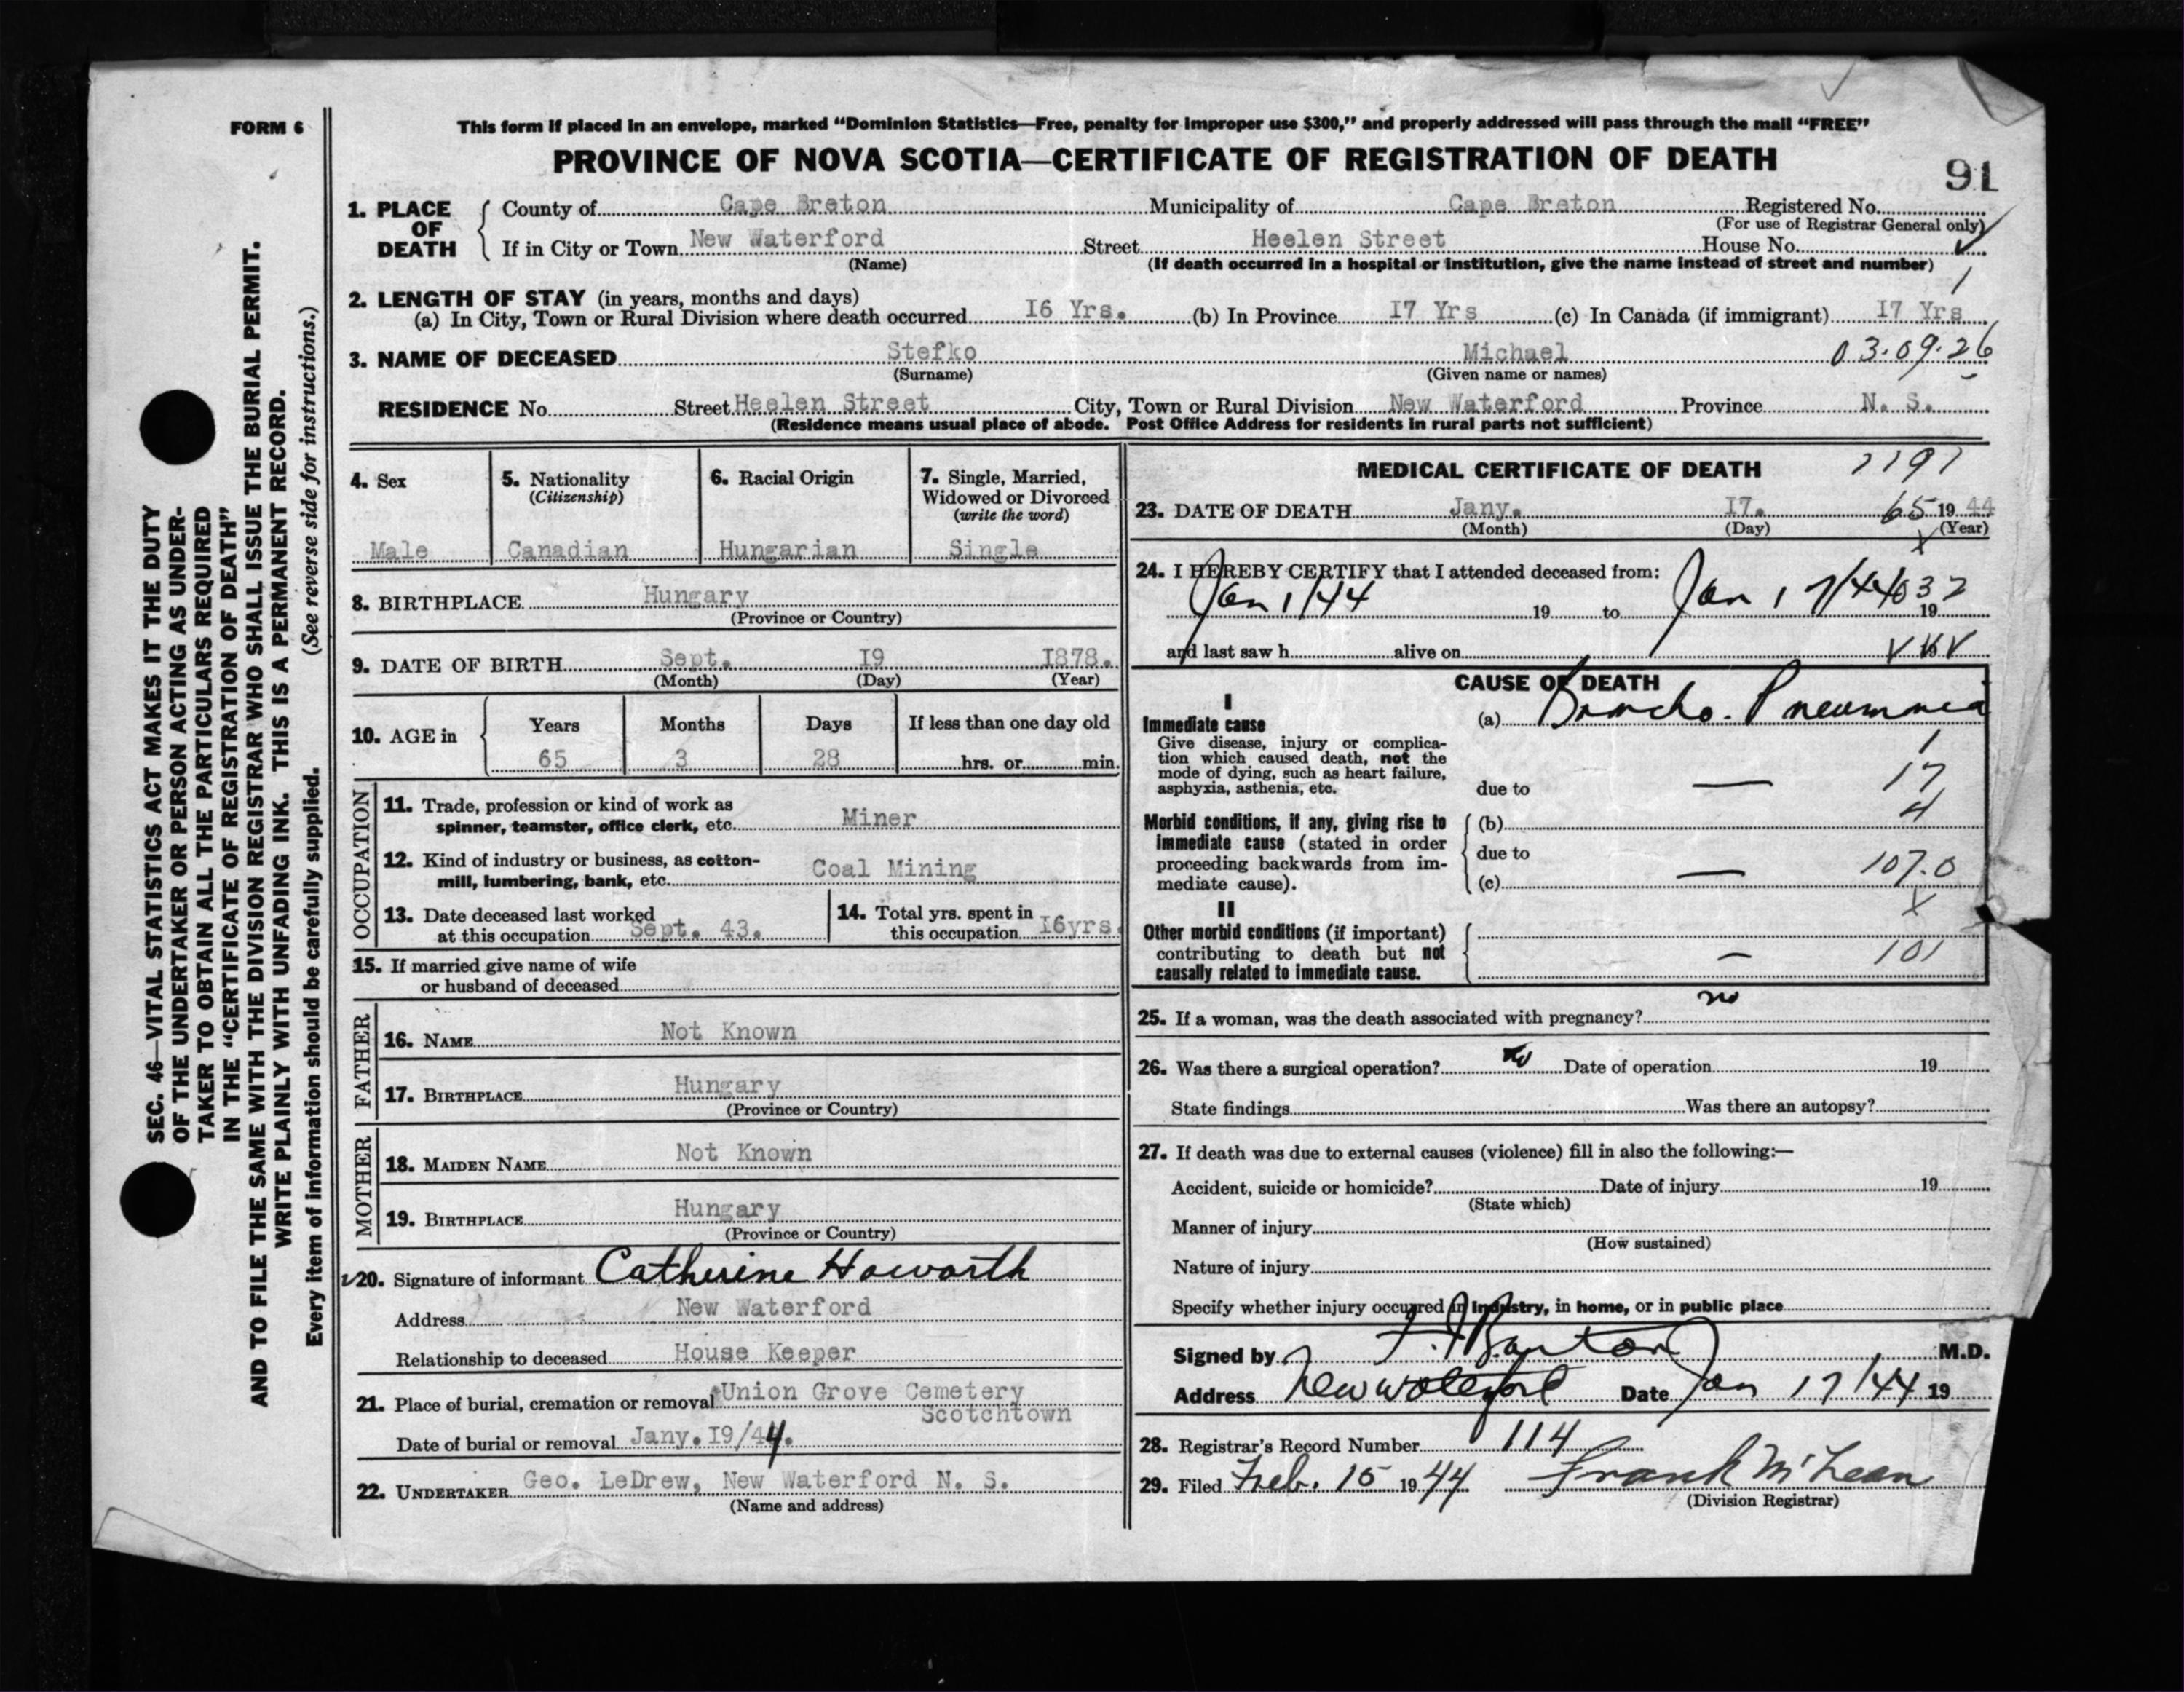 FORM 6
This form if placed in an envelope, marked “Dominion Statistics—Free, penalty for improper use $300,” and properly addressed will pass through the mail “FREE”
PROVINCE OF NOVA SCOTIA—CERTIFICATE OF REGISTRATION OF DEATH
91
1. PLACE OF DEATH
County of Cape Breton Municipality of Cape Breton Registered No.
(For use of Registrar General only)
If in City or Town New Waterford Street Heelen Street House No.
(Name) (If death occurred in a hospital or institution, give the name instead of street and number)
1
2. LENGTH OF STAY (in years, months and days)
(a) In City, Town or Rural Division where death occurred I6 Yrs. (b) In Province I7 Yrs (c) In Canada (if immigrant) I7 Yrs
3. NAME OF DECEASED Stefko Michael 03.09.26
(Surname) (Given name or names)
RESIDENCE No. Street Heelen Street City, Town or Rural Division New Waterford Province N. S.
(Residence means usual place of abode. Post Office Address for residents in rural parts not sufficient)
4. Sex
Male
5. Nationality
(Citizenship)
Canadian
6. Racial Origin
Hungarian
7. Single, Married,
Widowed or Divorced
(write the word)
Single
8. BIRTHPLACE Hungary
(Province or Country)
9. DATE OF BIRTH Sept. I9 I878.
(Month) (Day) (Year)
10. AGE in
Years Months Days If less than one day old
65 3 28 hrs. or min.
OCCUPATION
11. Trade, profession or kind of work as
spinner, teamster, office clerk, etc. Miner
12. Kind of industry or business, as cotton-
mill, lumbering, bank, etc. Coal Mining
13. Date deceased last worked
at this occupation Sept. 43.
14. Total yrs. spent in
this occupation I6yrs.
15. If married give name of wife
or husband of deceased
FATHER
16. NAME Not Known
17. BIRTHPLACE Hungary
(Province or Country)
MOTHER
18. MAIDEN NAME Not Known
19. BIRTHPLACE Hungary
(Province or Country)
20. Signature of informant Catherine Howorth
Address New Waterford
Relationship to deceased House Keeper
21. Place of burial, cremation or removal Union Grove Cemetery
Scotchtown
Date of burial or removal Jany. I9/44.
22. UNDERTAKER Geo. LeDrew, New Waterford N. S.
(Name and address)
MEDICAL CERTIFICATE OF DEATH
23. DATE OF DEATH Jany. I7. 65 19 44
(Month) (Day) (Year)
24. I HEREBY CERTIFY that I attended deceased from:
Jan 1/44 19 to Jan 17/44 19
032
and last saw h alive on
CAUSE OF DEATH
I
Immediate cause
Give disease, injury or complica-
tion which caused death, not the
mode of dying, such as heart failure,
asphyxia, asthenia, etc.
(a) Broncho. Pneumonia
1
17
due to —
4
Morbid conditions, if any, giving rise to
immediate cause (stated in order
proceeding backwards from im-
mediate cause).
(b)
due to
107.0
(c) —
II
Other morbid conditions (if important)
contributing to death but not
causally related to immediate cause.
—
101
25. If a woman, was the death associated with pregnancy? no
26. Was there a surgical operation? no Date of operation 19
State findings Was there an autopsy?
27. If death was due to external causes (violence) fill in also the following:—
Accident, suicide or homicide? Date of injury 19
(State which)
Manner of injury
(How sustained)
Nature of injury
Specify whether injury occurred in industry, in home, or in public place
Signed by M.D.
Address New Waterford Date Jan 17/44 19
28. Registrar's Record Number 114
29. Filed Feb. 15 1944 Frank McLean
(Division Registrar)
SEC. 46—VITAL STATISTICS ACT MAKES IT THE DUTY
OF THE UNDERTAKER OR PERSON ACTING AS UNDER-
TAKER TO OBTAIN ALL THE PARTICULARS REQUIRED
IN THE “CERTIFICATE OF REGISTRATION OF DEATH”
AND TO FILE THE SAME WITH THE DIVISION REGISTRAR WHO SHALL ISSUE THE BURIAL PERMIT.
WRITE PLAINLY WITH UNFADING INK. THIS IS A PERMANENT RECORD.
Every item of information should be carefully supplied. (See reverse side for instructions.)